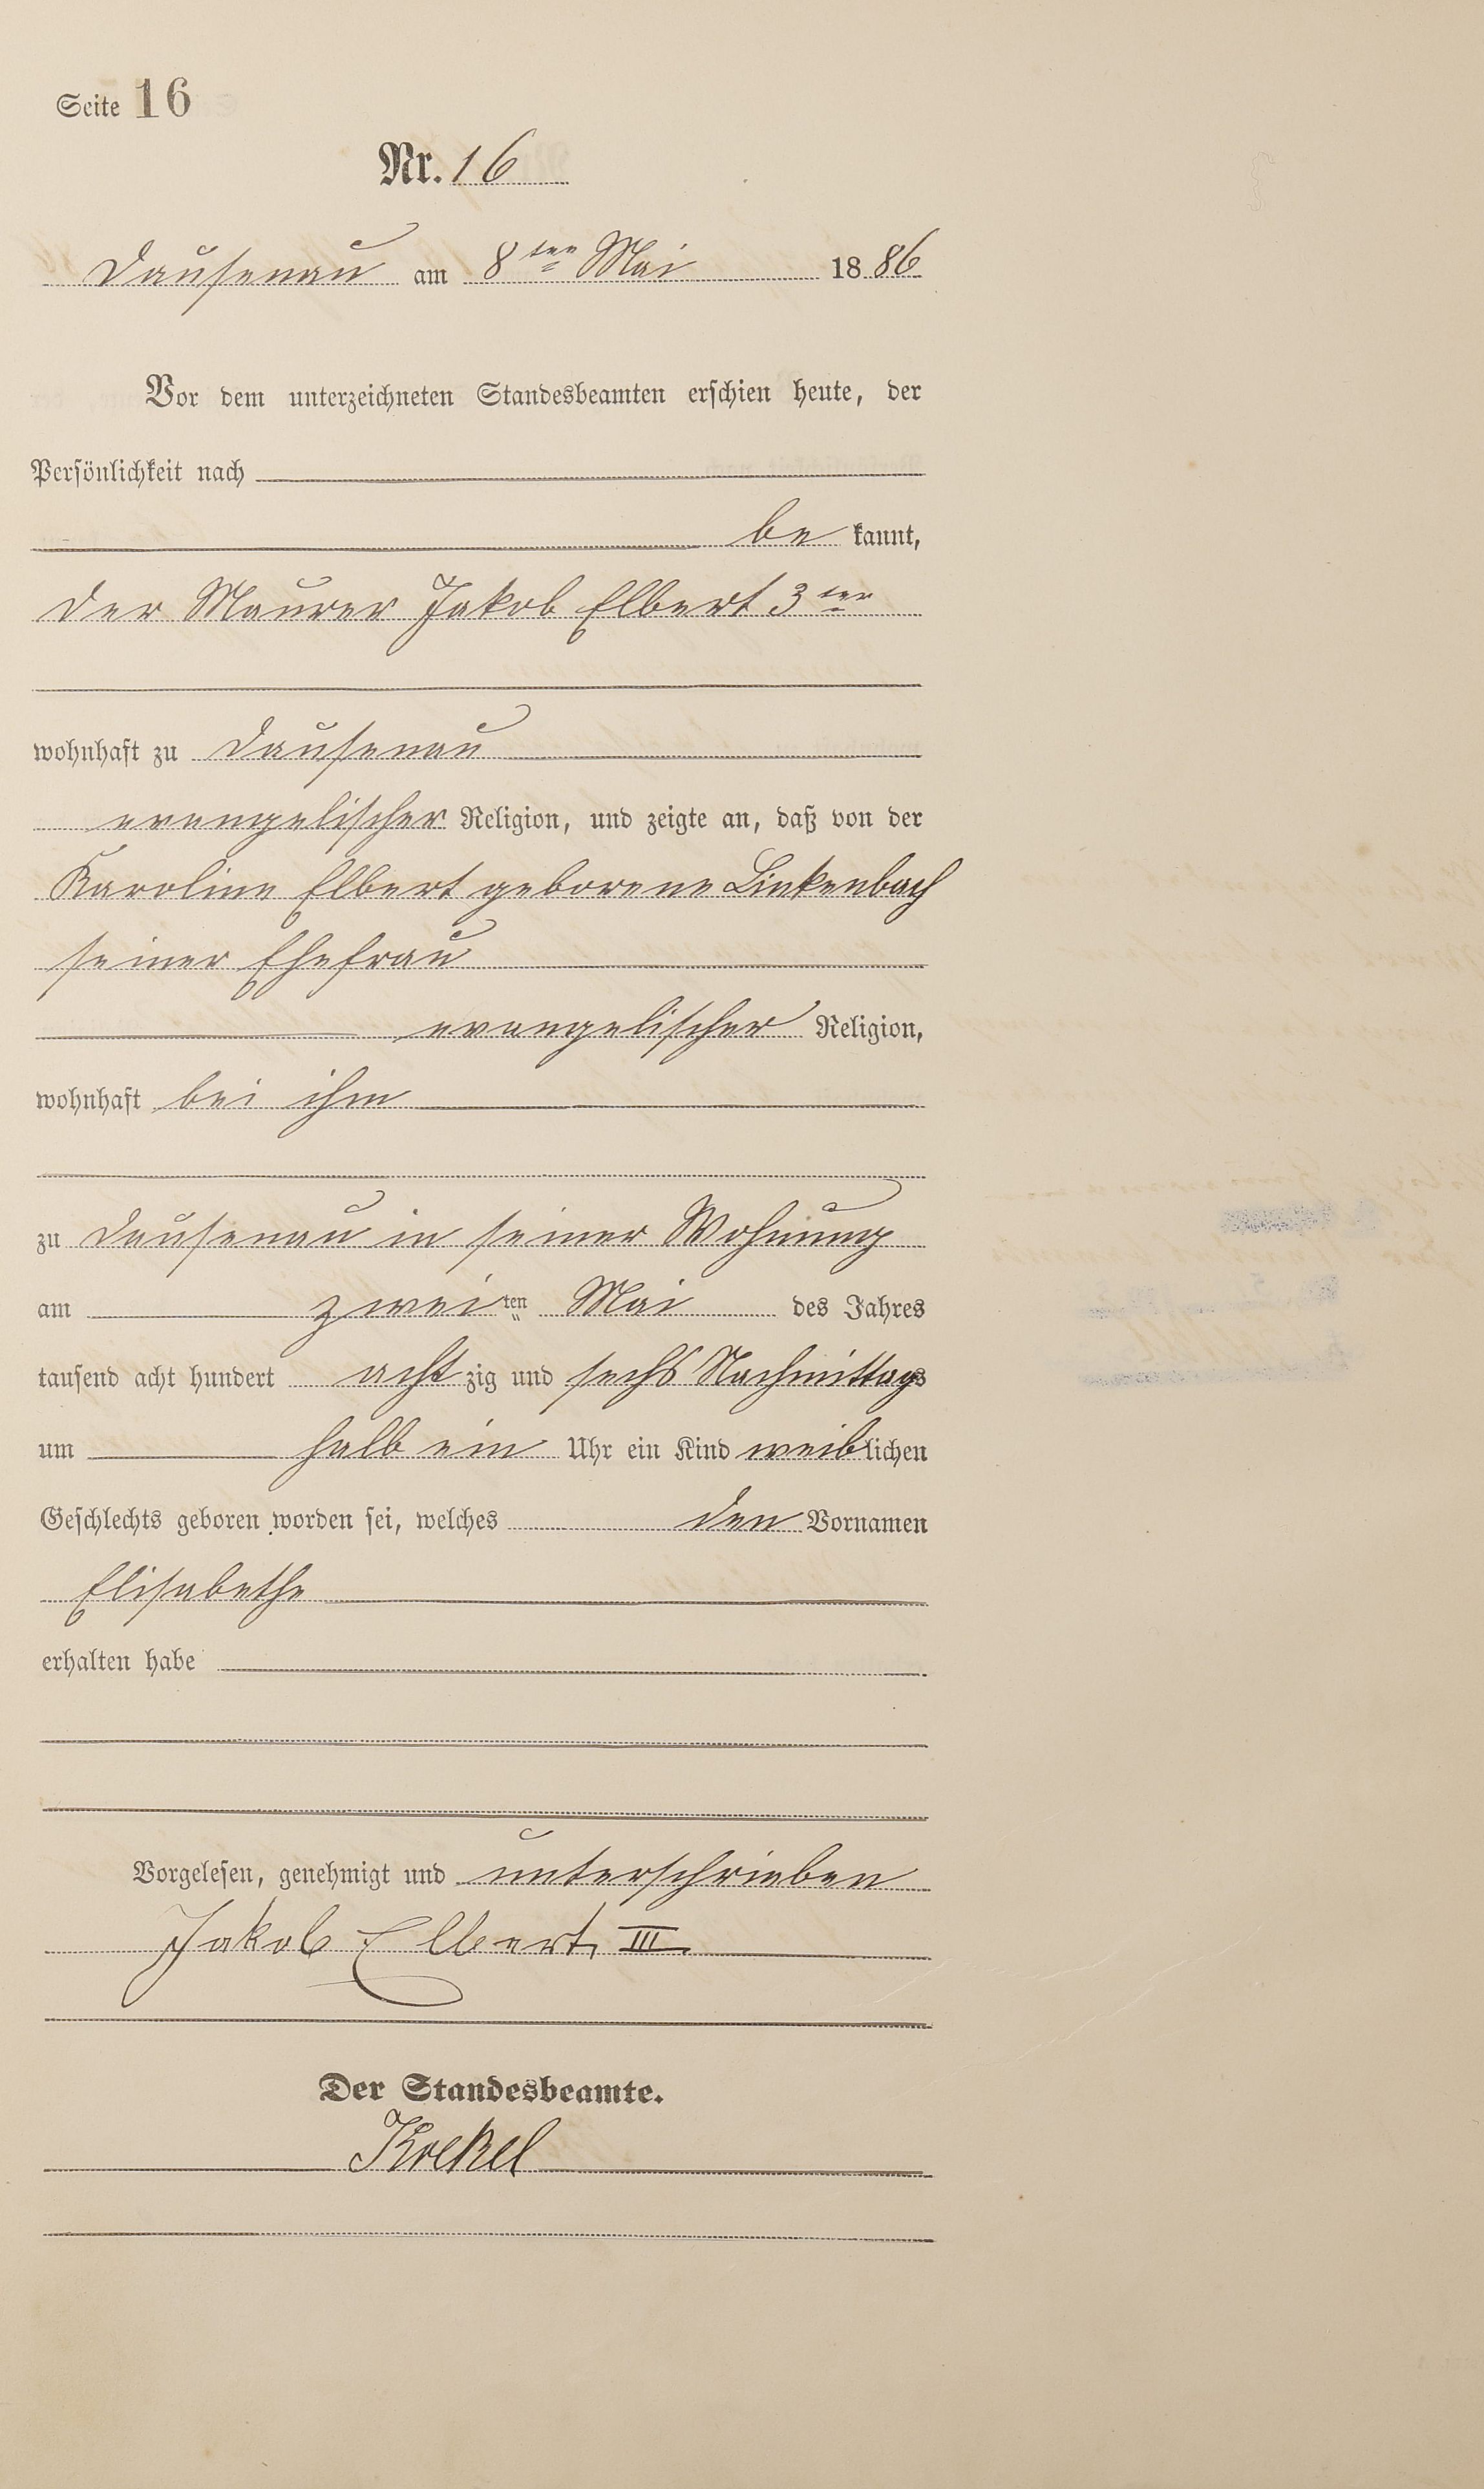 Seite 16
Nr. 16
Dausenau am 8ten Mai 1886
Vor dem unterzeichneten Standesbeamten erschien heute, der
Persönlichkeit nach
be kannt,
der Maurer Jakob Elbert 3ter
wohnhaft zu Dausenau
evangelischer Religion, und zeigte an, daß von der
Karoline Elbert geborene Linkenbach
seiner Ehefrau
evangelischer Religion,
wohnhaft bei ihm
zu Dausenau in seiner Wohnung
am zweiten Mai des Jahres
tausend acht hundert achtzig und sechs Nachmittags
um halb ein Uhr ein Kind weiblichen
Geschlechts geboren worden sei, welches den Vornamen
Elisabethe
erhalten habe
Vorgelesen, genehmigt und unterschrieben
Jakob Elbert III
Der Standesbeamte.